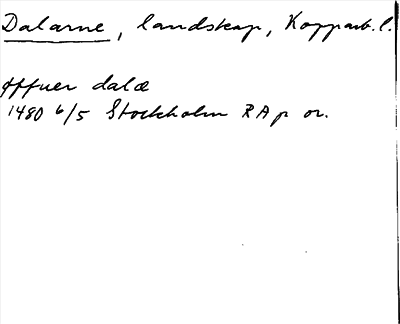 Dalarne, landskap, Kopparb. l.
øffuer dalæ
1480 6/5 Stockholm RA p or.